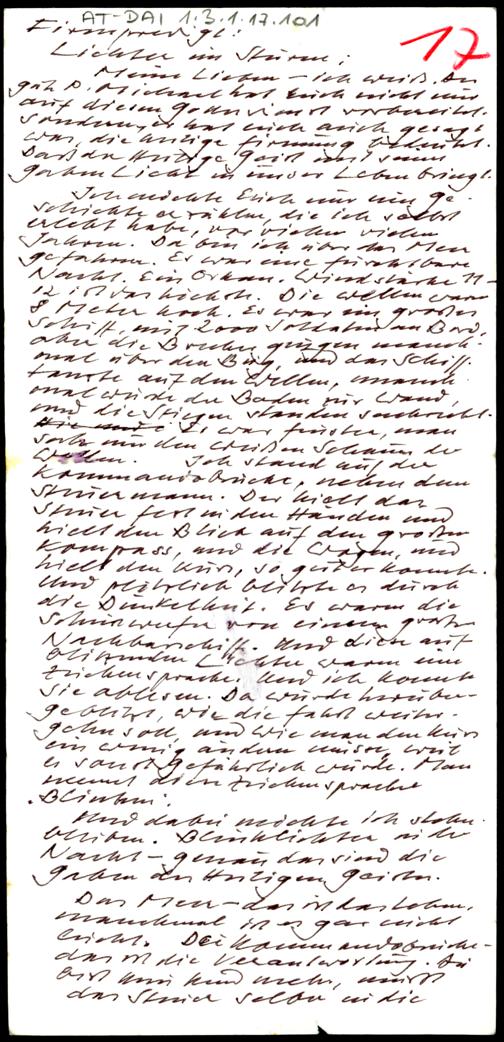 AT-DAI 1.3.1.17.101
17
Firmpredigt:
Lichter im Sturm:
Meine Lieben – ich weiß. Der
gute P. Michael hat Euch nicht nur
auf diesen Gottesdienst vorbereitet,
sondern er hat euch auch gesagt
was die heilige Firmung bedeutet.
Daß der Heilige Geist mit seinen
Gaben Licht in unser Leben bringt.
Ich möchte Euch nur eine Ge-
schichte erzählen, die ich selbst
erlebt habe, vor vielen vielen
Jahren. Da bin ich über das Meer
gefahren. Es war eine furchtbare
Nacht. Ein Orkan. Windstärke 11-
12 ist das höchste. Die Wellen waren
8 Meter hoch. Es war ein großes
Schiff, mit 2000 Soldaten an Bord,
aber die Brecher gingen manch-
mal über den Bug, und das Schiff
tanzte auf den Wellen, manch-
mal wurde der Boden zur Wand,
und die Stiegen standen senkrecht.
Es war finster, man
sah nur den weißen Schaum der
Wellen. Ich stand auf der
Kommandobrücke, neben dem
Steuermann. Der hielt das
Steuer fest in den Händen und
hielt den Blick auf den großen
Kompass, und die Wogen, und
hielt den Kurs, so gut er konnte.
Und plötzlich blitzte es durch
die Dunkelheit. Es waren die
Scheinwerfer von einem großen
Nachbarschiff. Und diese auf-
blitzenden Lichter waren eine
Zeichensprache. Und ich konnte
sie ablesen. Da wurde herüber-
geblitzt, wie die Fahrt weiter-
gehn soll, und wie man den Kurs
ein wenig ändern müsse, weil
es sonst gefährlich würde. Man
nennt diese Zeichensprache
Blinken.
Und dabei möchte ich stehn
bleiben. Blinklichter in der
Nacht – genau das sind die
Gaben des Heiligen Geistes.
Das Meer – das ist das Leben,
manchmal ist es gar nicht
leicht. Die Kommandobrücke –
das ist die Verantwortung. Du
bist kein Kind mehr, mußt
das Steuer selber in die